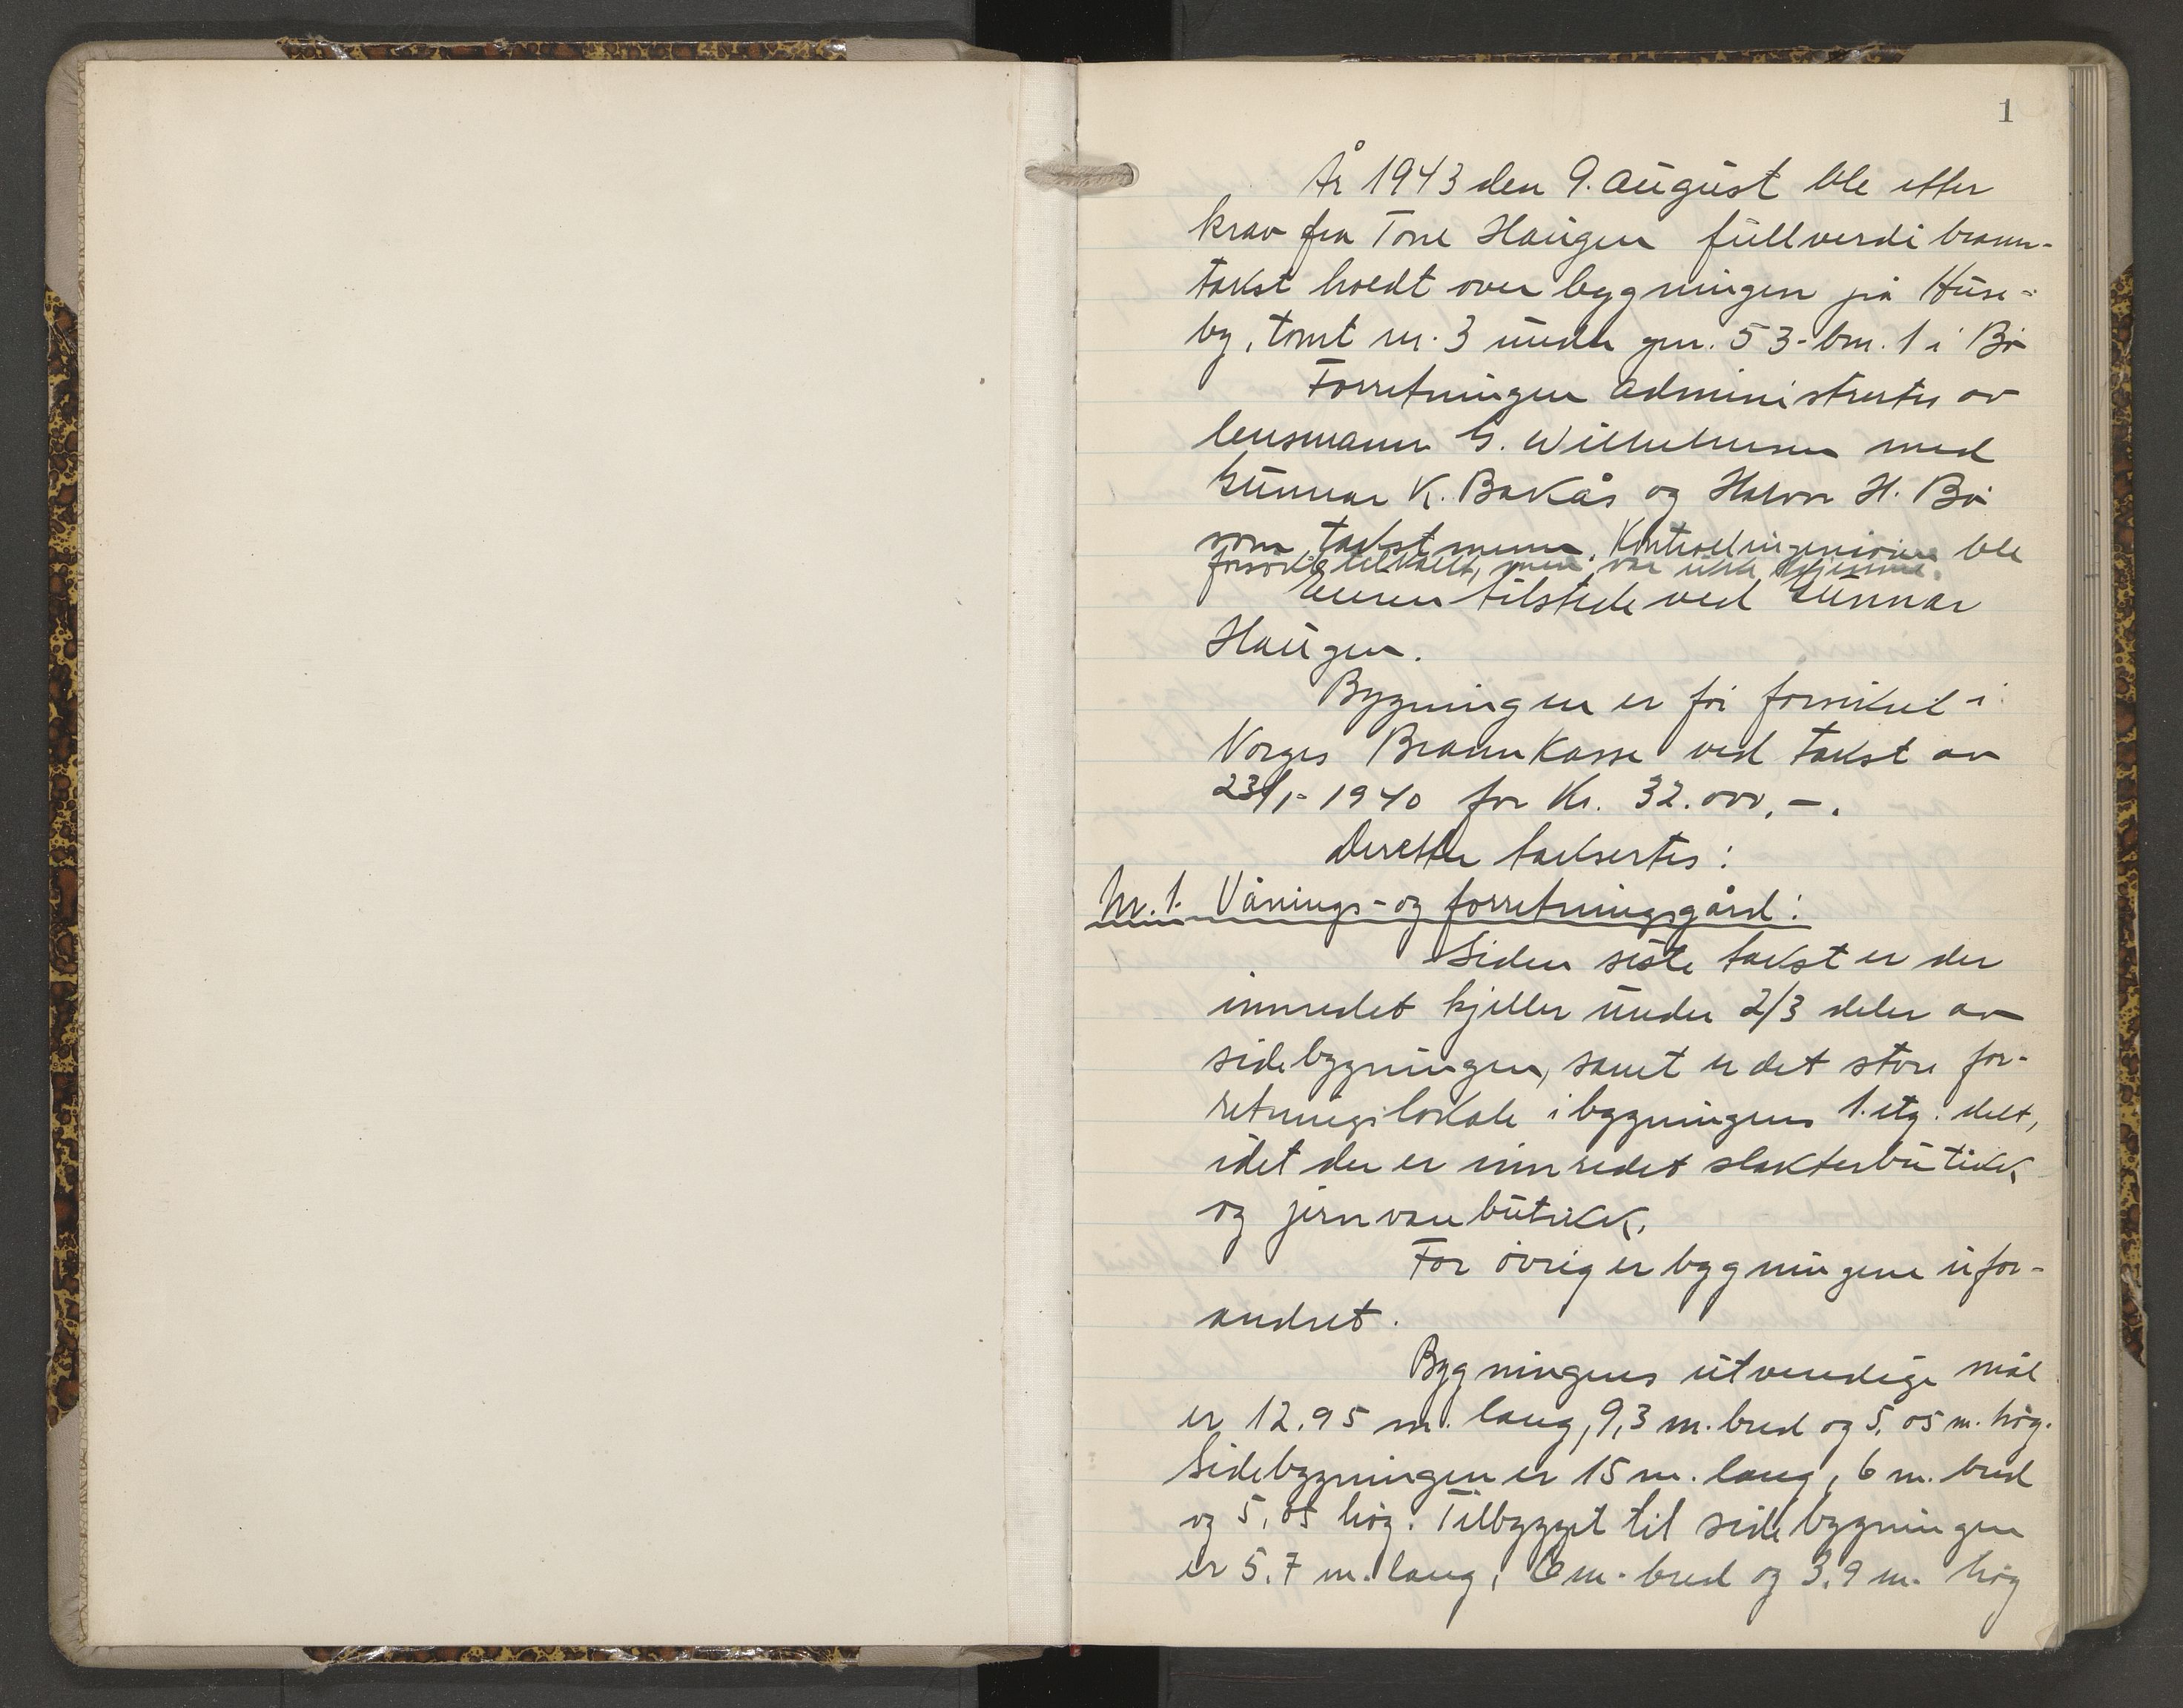 1
År 1943 den 9. august ble efter
krav fra Tone Haugen fullverdi brann-
takst holdt over bygningen på Huse-
by, tomt nr. 3 under gnr. 53 - bnr. 1 i Bø
Forretningen administrertes av
lensmann G. Wilhelmsen med
Gunnar K. Bakås og Halvor H. Bø
som takstmenn. Kontrollingeniøren ble
forsøkt tilkalt, men var ikke hjemme.
Eieren tilstede ved Gunnar
Haugen.
Bygningen er før forsikret i
Norges Brannkasse ved takst av
23/1- 1940 for Kr. 32.000,-.
Deretter taksertes:
Nr. 1. Vånings- og forretningsgård:
Siden siste takst er der
innredet kjeller under 2/3 deler av
sidebygningen, samt er det store for-
retningslokale i bygningens 1. etg. delt,
idet der er innredet slakterbutikk
og jernvarebutikk.
For øvrig er bygningene ufor-
andret.
Bygningens utvendige mål
er 12.95 m. lang, 9,3 m. bred og 5,05 m. høg.
Sidebygningen er 15 m. lang, 6 m. bred
og 5,05 høg. Tilbygget til sidebygningen
er 5.7 m. lang, 6 m. bred og 3.9 m. høg